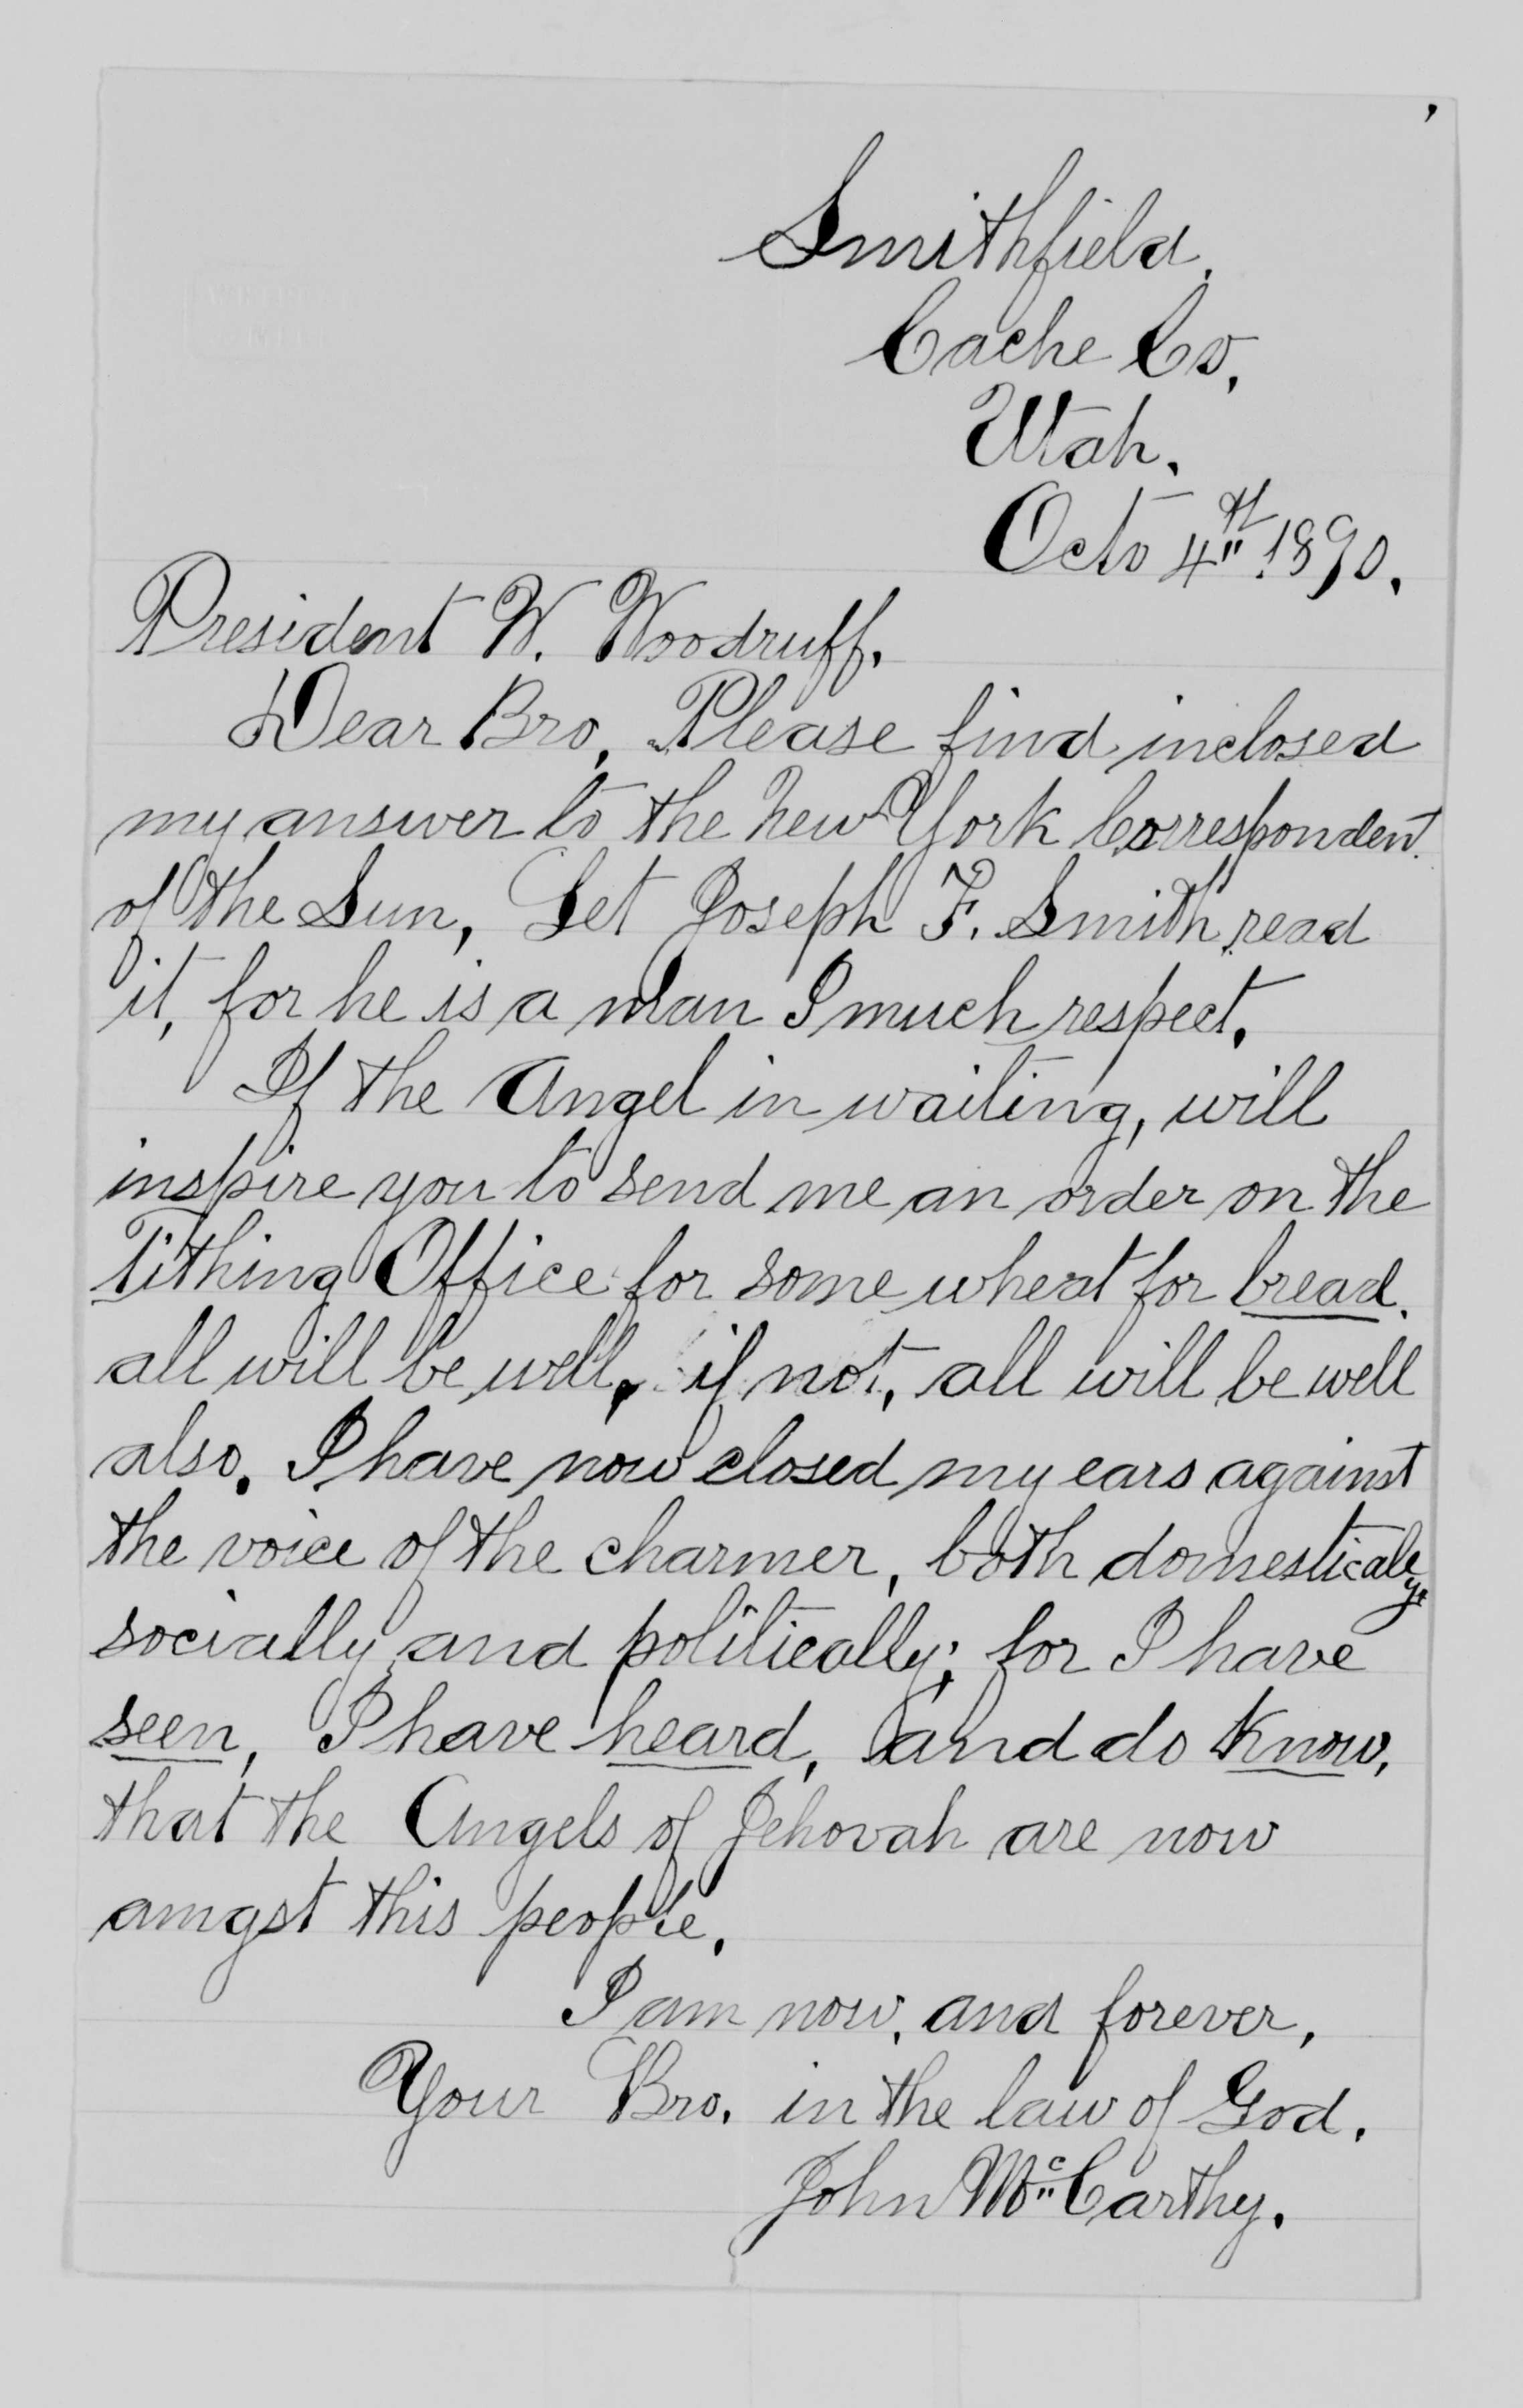 Smithfield,
Cache Co,
Utah.
Octo 4th 1890.
President W. Woodruff.
Dear Bro, Please find inclosed
my answer to the New York Correspondent
of the Sun, Let Joseph F. Smith read
it, for he is a man I much respect.
If the Angel in waiting, will
inspire you to send me an order on the
Tithing Office for some wheat for bread.
all will be well, if not, all will be well
also. I have now closed my ears against
the voice of the charmer, both domesticaly
socially and politically; for I have
seen, I have heard, and do know,
that the Angels of Jehovah are now
amgst this people.
I am now, and forever,
Your Bro. in the law of God.
John McCarthy.